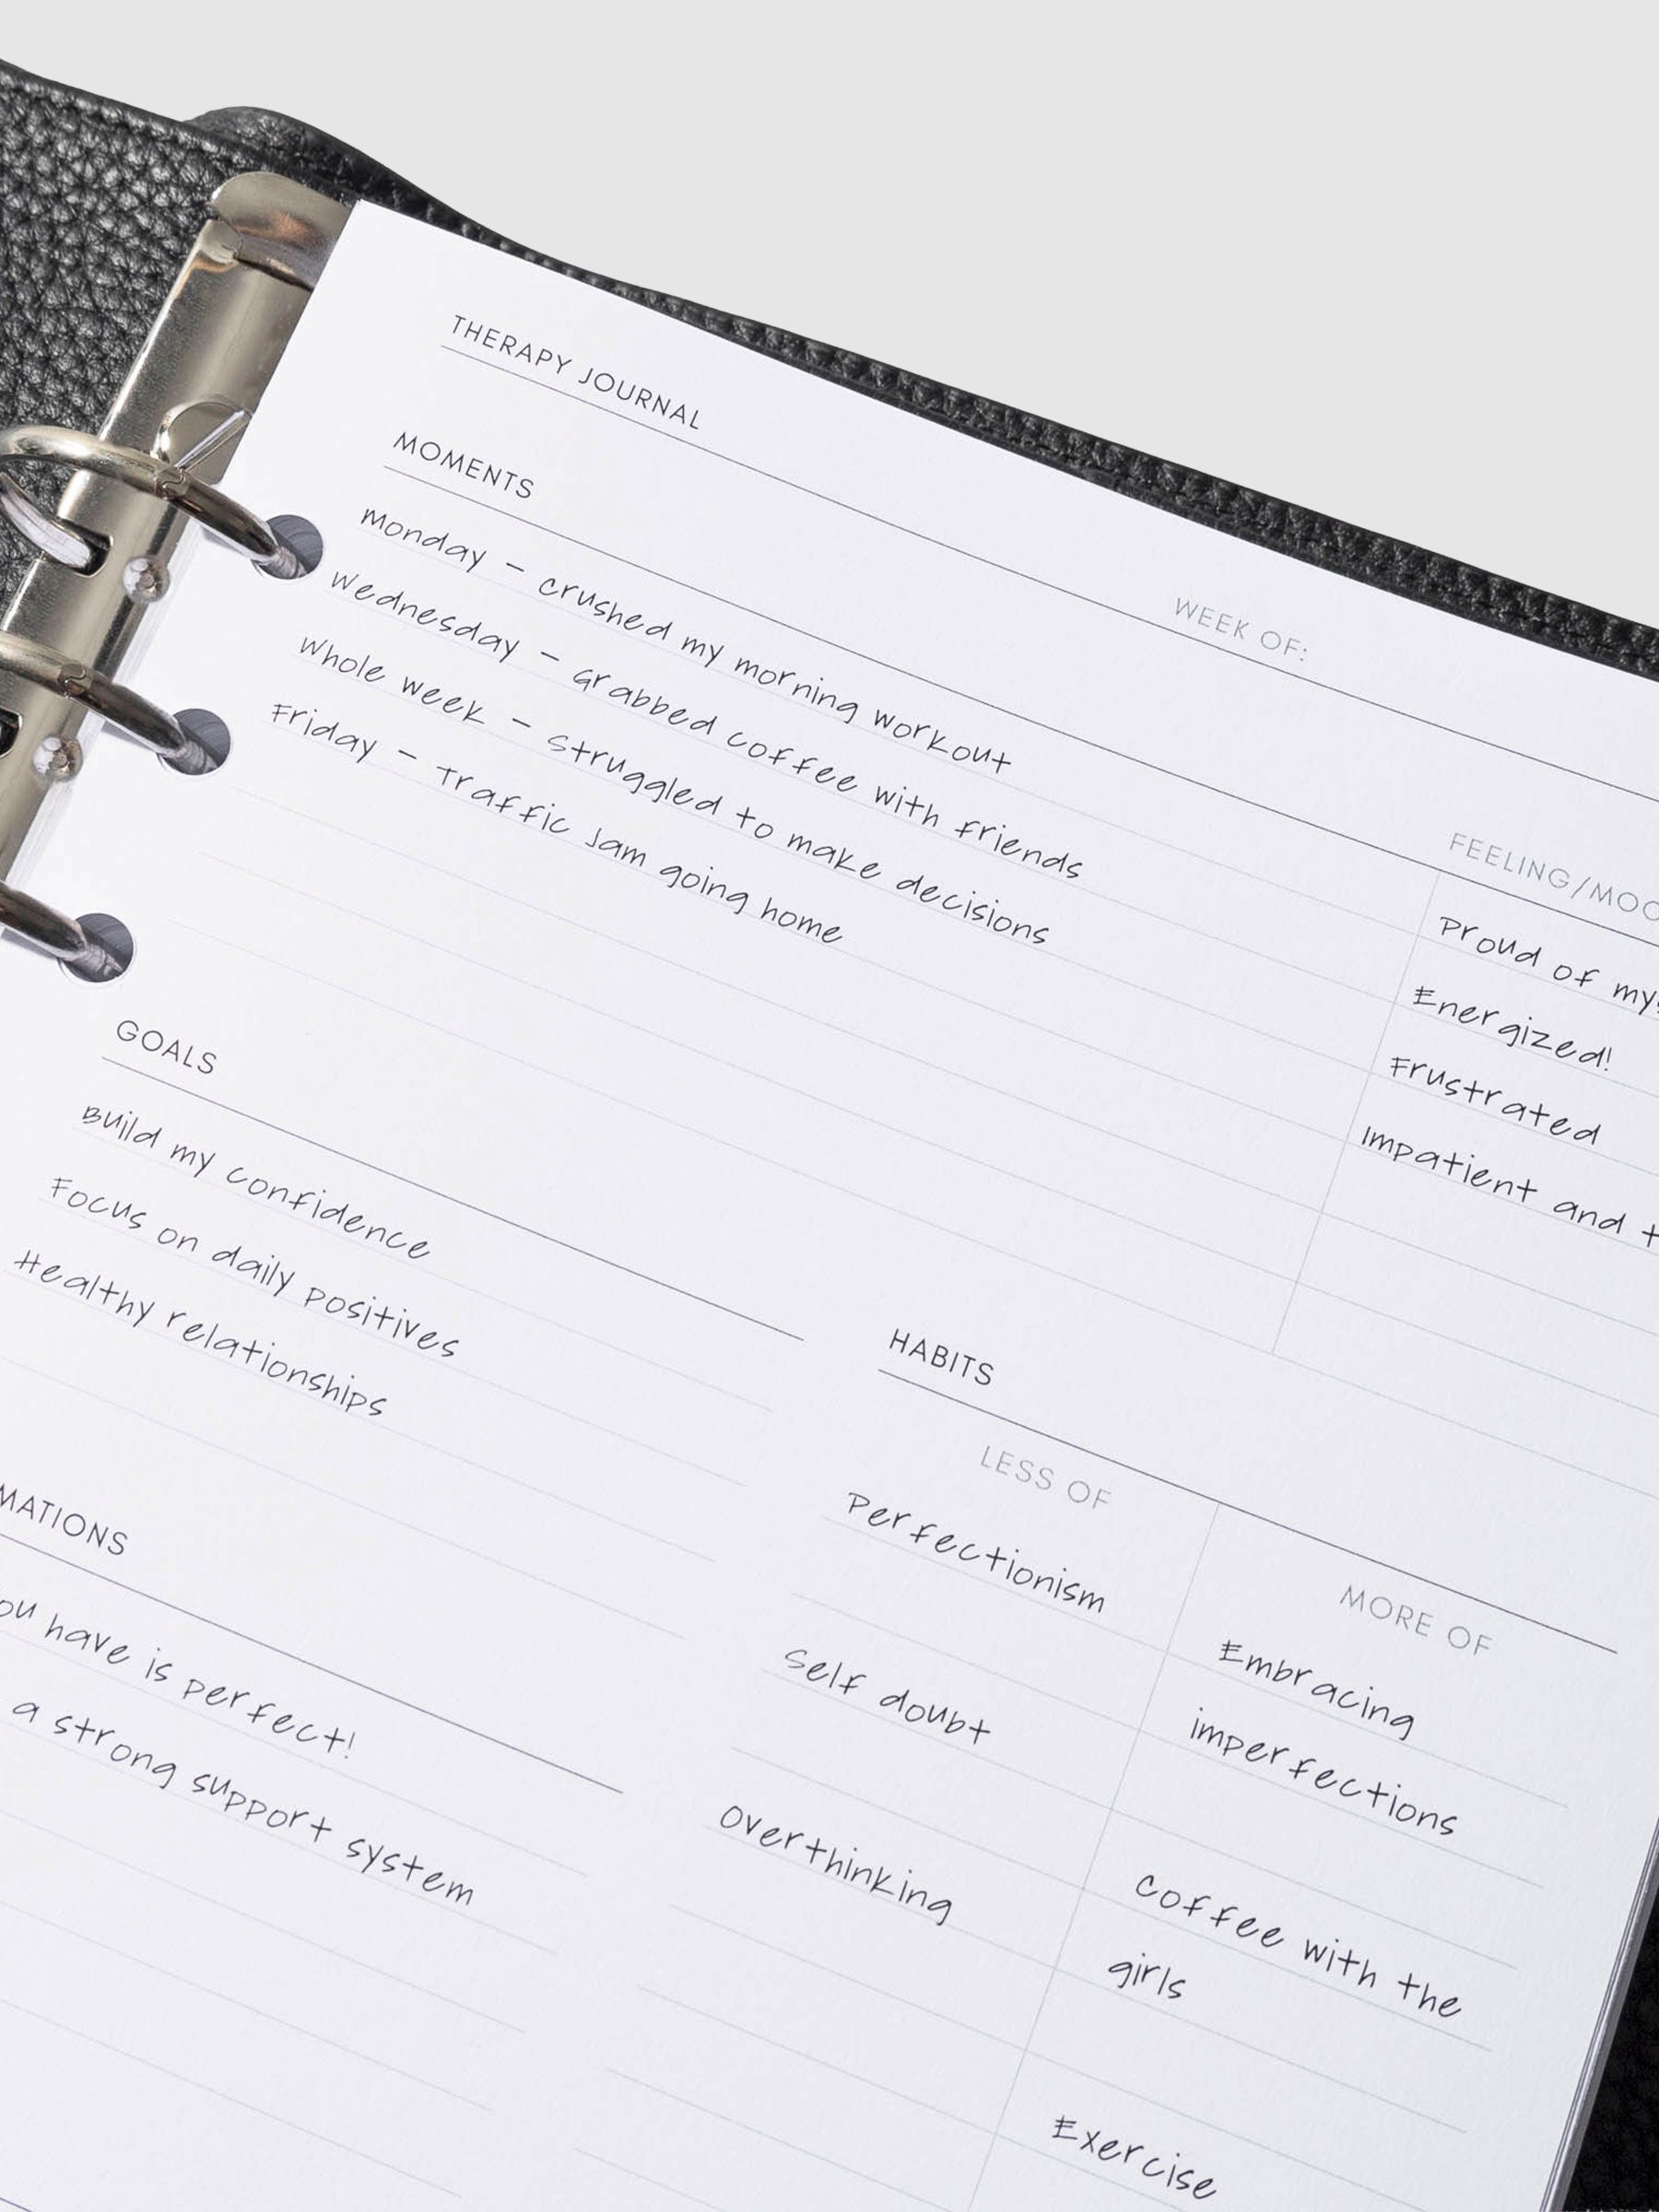 THERAPY JOURNAL
WEEK OF:
MOMENTS
FEELING/MOO
Monday - Crushed my morning workout
Proud of my
Wednesday - Grabbed coffee with friends
Energized!
Whole week - Struggled to make decisions
Frustrated
Friday - Traffic Jam going home
Impatient and t
GOALS
Build my confidence
Focus on daily positives
Healthy relationships
HABITS
LESS OF
MORE OF
Perfectionism
Embracing
imperfections
Self doubt
Coffee with the
girls
Overthinking
Exercise
MATIONS
ou have is perfect!
a strong support system